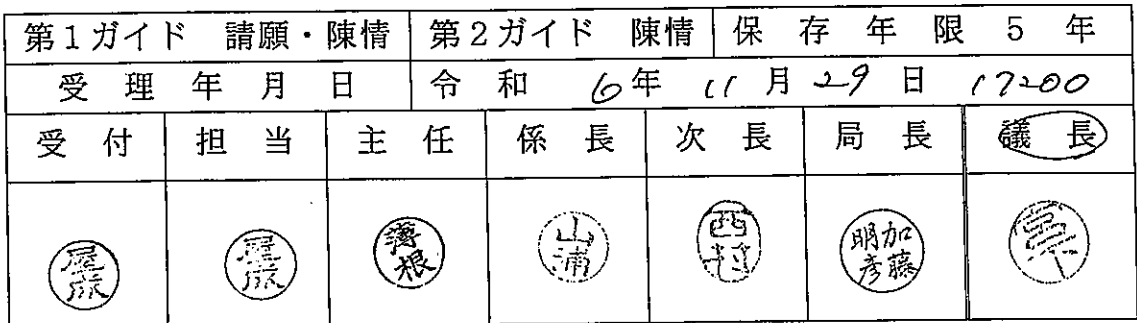 第1ガイド 請願・陳情 第2ガイド 陳情 保存年限5年
受理年月日 令和 6年 11月 29日 17:00
受付 担当 主任 係長 次長 局長 議長
薄根 山浦 西村 加藤明彦